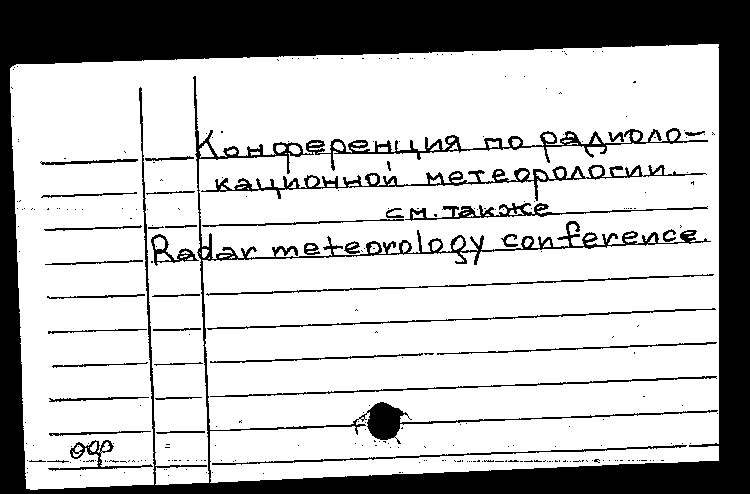 Конференция по радиоло-
кационной метеорологии.
см. также
Radar meteorology conference.
оар